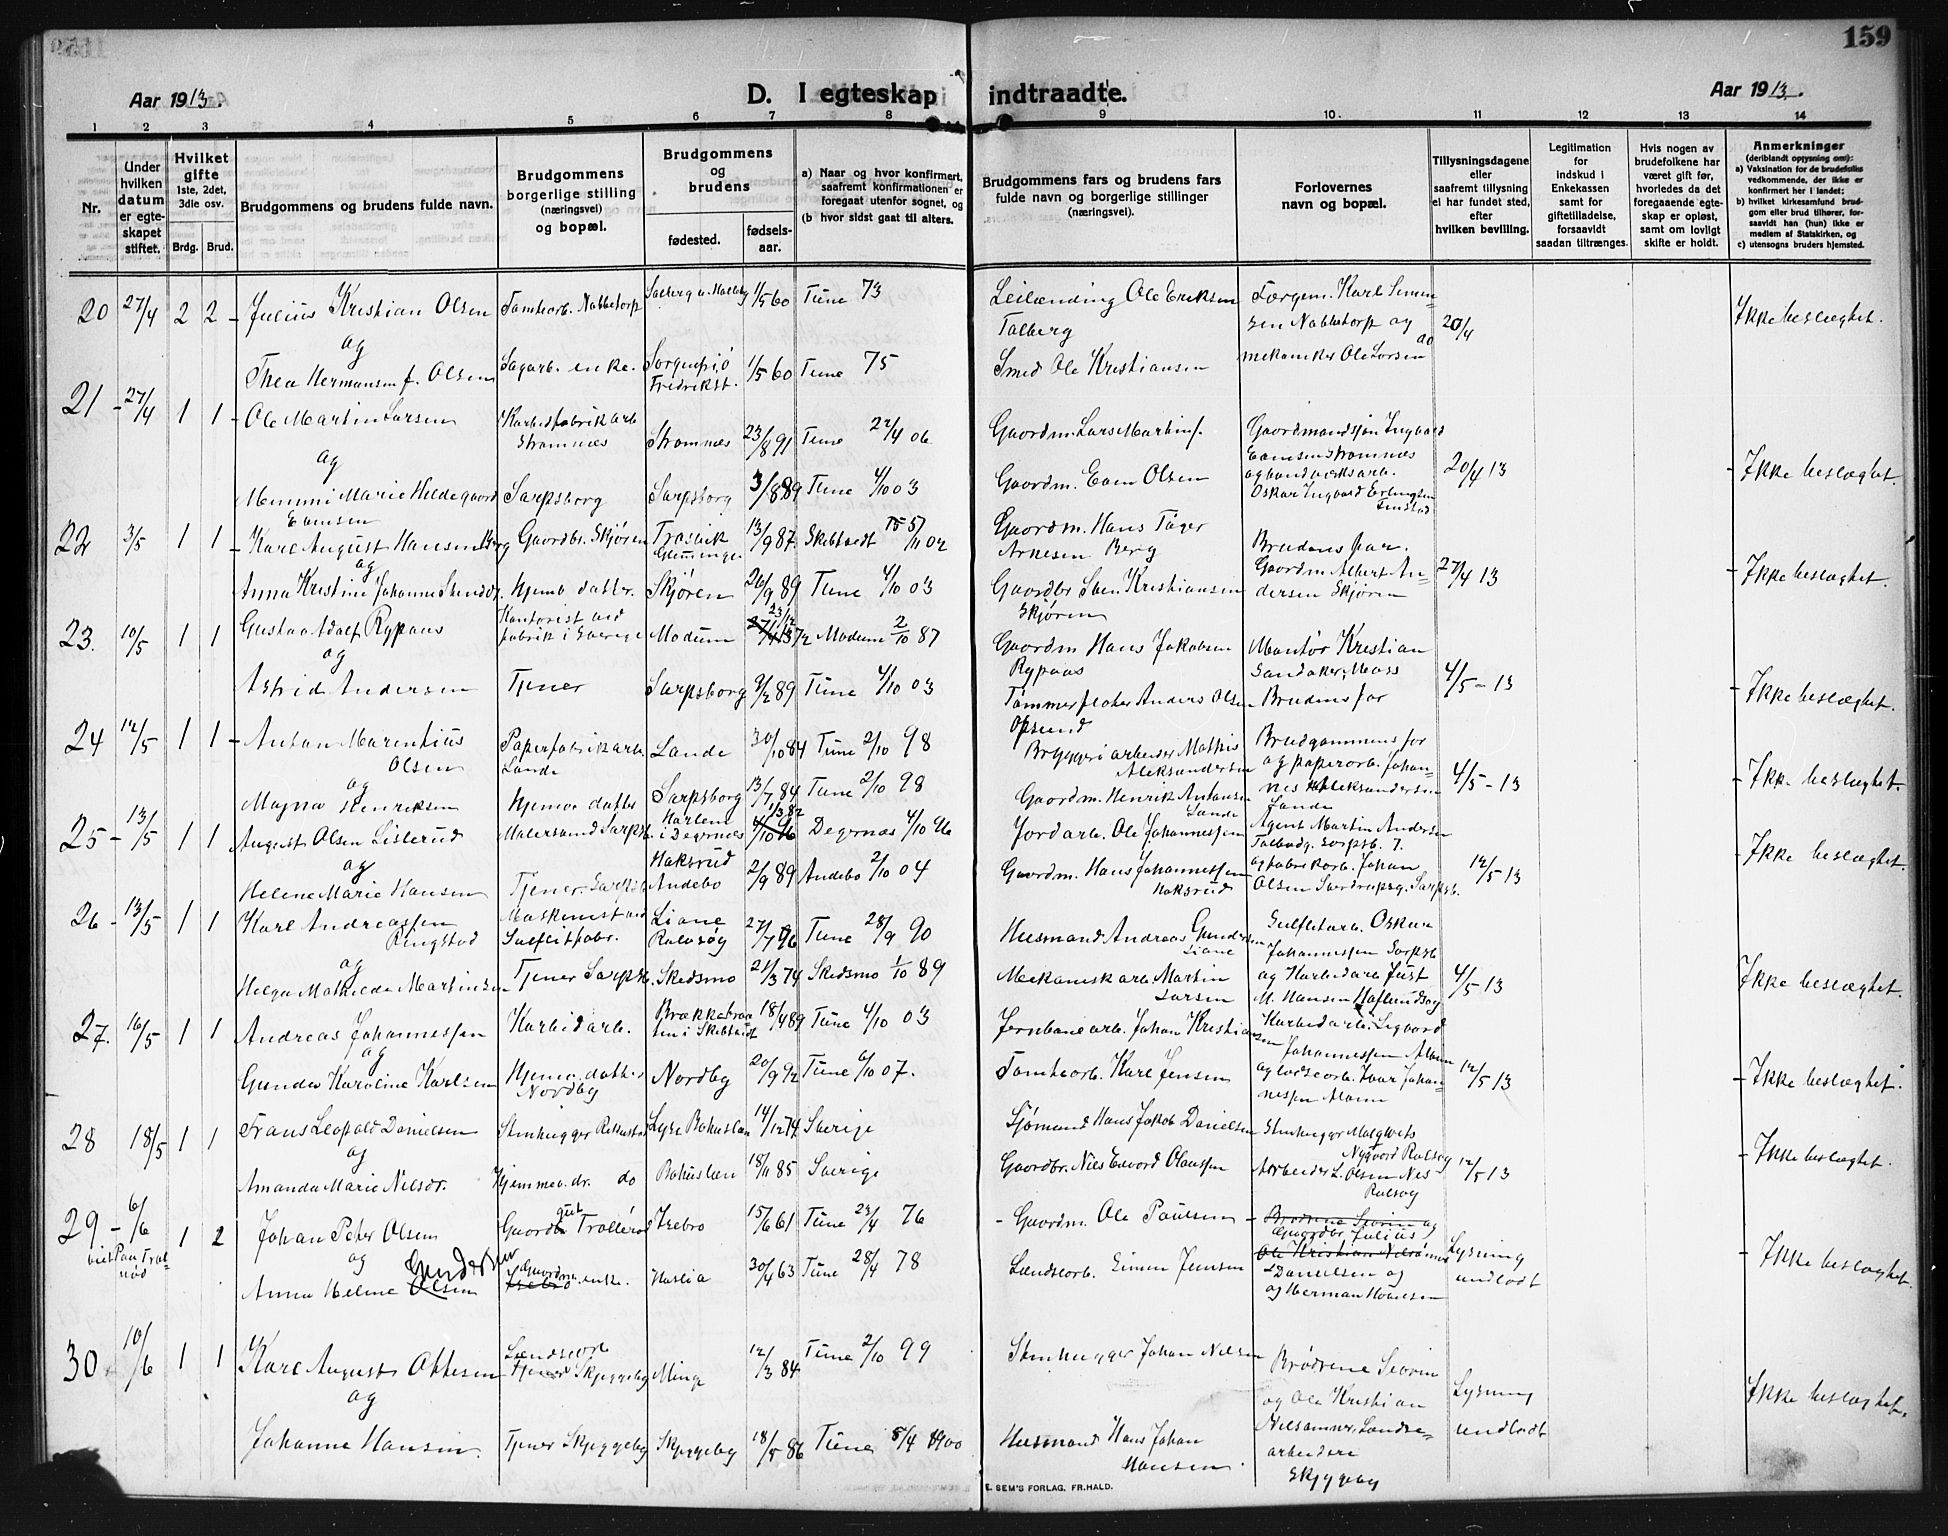 159
Aar 1913.
D. I egteskap indtraadte.
Aar 1913.
1 2 3 4 5 6 7 8 9 10 11 12 13 14
Nr.
Under hvilken datum er egteskapet stiftet.
Hvilket gifte
1ste, 2det, 3die osv.
Brdg. Brud.
Brudgommens og brudens fulde navn.
Brudgommens borgerlige stilling (næringsvei) og bopæl.
Brudgommens og brudens
fødested.
fødselsaar.
a) Naar og hvor konfirmert, saafremt konfirmationen er foregaat utenfor sognet, og
(b hvor sidst gaat til alters.
Brudgommens fars og brudens fars fulde navn og borgerlige stillinger (næringsvei).
Forlovernes navn og bopæl.
Tillysningsdagene eller saafremt tillysning ei har fundet sted, efter hvilken bevilling.
Legitimation for indskud i Enkekassen samt for giftetilladelse, forsaavidt saadan tiltrænges.
Hvis nogen av brudefolkene har været gift før, hvorledes da det foregaaende egteskap er opløst, samt om lovligt skifte er holdt.
Anmerkninger
(deriblandt oplysning om):
a) Vaksination for de brudefolks vedkommende, der ikke er konfirmert her i landet;
b) hvilket kirkesamfund brudgom eller brud tilhører, forsaavidt han (hun) ikke er medlem af Statskirken, og
c) utensogns bruders hjemsted.
20 27/4 2 2 - Julius Kristian Olsen Tomtearb. Nabbetorp 1/5 60 Tune 73 Leilænding Ole Eriksen Talberg
og
Thea Hermansen f. Olsen Sagarb. enke. Fredrikst. 1/5 60 Tune 75 Smed Ole Kristiansen
Færgem. Karl Simensen Nabbetorp og mekaniker Ole Larsen do 20/4 Ikke beslegtet.
21 - 27/4 1 1 - Ole Martin Larsen Karbidfabrikarb Strømnes Strømnes 23/8 91 Tune 22/4 06 Gaardm. Lars Martinf.
og
Mimmi Marie Hildegaard Evensen Sarpsborg Sarpsborg 3/8 89 Tune 4/10 03 Gaardm. Even Olsen
Gaardmandssøn Ingvald Evensen Strømnes og haandverksarb. Oskar Ingvald Erlingsen 20/4 13 - Ikke beslegtet.
22 3/5 1 1 - Karl August Hansen Berg Gaardbr. Skjøren Trosvik Glemminge 13/9 87 Skibtvedt 5/11 02 Gaardm. Hans Arnesen Berg
og
Anna Kristine Johanne Svendsdr. Hjemv. datter. Skjøren 26/9 89 Tune 4/10 03 Gaardbr Sven Kristiansen Skjøren
Brudens far. Gaardm Albert Andersen Skjøren 27/4 13 - Ikke beslegtet.
23. 10/5 1 1 Gustav Adolf Rypaas Kontorist ved fabrik i Sverige Modum 23/12 72 Modum 2/10 87 Gaardm Hans Jakobsen Rypaas
og
Astrid Andersen Tjener Sarpsborg 9/2 89 Tune 4/10 03 Tømmerfløter Anders Olsen Opsund
Montør Kristian Sandaker, Moss Brudens far 4/5 - 13 - Ikke beslegtet.
24 12/5 1 1 - Anton Marentius Olsen Papirfabrikarb. Lande Lande 30/10 84 Tune 2/10 98 Bryggeriarbeider Mathis Aleksandersen
og
Magna Henriksen Hjemv. datter Sarpsborg 13/7 84 Tune 2/10 98 Gaardm. Henrik Antonsen Lande
Brudgommens far og papirarb. Johannes Aleksandersen Lande 4/5 - 13 - Ikke beslegtet.
25 - 13/5 1 1 August Olsen Listerud Malersvend Sarpsb. i Degernes 1/3 82 Degernes 4/10 96 Jordarb. Ole Johannessen
og
Helene Marie Hansen Tjener Sarpsb. Haksrud Andebo 2/9 89 Andebo 2/10 04 Gaardm. Hans Johannessen Haksrud
Agent Martin Andersen Sarpsb. 7. og fabrikarb. Johan Olsen Sarpsb. 12/5 13 - Ikke beslegtet.
26 - 13/5 1 1 Karl Andreassen Ringstad Maskinist ved Sulfitfabr. Liane Rolvsøy 27/7 76 Tune 28/9 90 Husmand Andreas Gundersen Liane
og
Helga Mathilde Martinsen Tjener Sarpsb. Skedsmo 21/3 74 Skedsmo 1/10 89 Mekaniskarb. Martin Larsen
Sulfitarb. Oskar Johannessen Sarpsb og Karbidarb. Just M. Hansen Haflundsøy 4/5 13 Ikke beslegtet.
27. 16/5 1 1 Andreas Johannessen Karbidarb. 18/4 89 Tune 4/10 03 Jernbanearb. Johan Kristiansen
og
Gunda Karoline Karlsen Hjemv. datter Nordby Nordby 20/9 92 Tune 6/10 07. Tomtearb. Karl Jensen
Karbidarb. Sigvard Johannessen Alvim og Ivar Johannessen Alvim 12/5 13 - Ikke beslegtet.
28 18/5 1 1 Frans Leopold Danielsen Stenhugger Lyse Bohuslen 14/12 74 Sverige Sjømand Hans Jakob Danielsen
og
Amanda Marie Nilsdr. Hjemmev. dr. do Bohuslen 18/11 85 Sverige Gaardbr. Nils Edvord Olaussen
Stenhugger Nygaard Rolvsøy Arbeider L. Olsen Nes Rolvsøy 12/5 13 - Ikke beslegtet.
29 - 6/6 1 2 Johan Peter Olsen Gaardbr gut Trollerød Trebro 15/6 61 Tune 23/4 76 - Gaardm. Ole Paulsen
og
Anna Helene Olsen Gundersen Gaardm. enke. Haslia 30/4 63 Tune 28/4 78 Landearb. Simen Jensen
Brødrene Severin og Ole Kristian Gaardbr. Julius Danielsen og Herman Hansen Lysning undladt - Ikke beslegtet.
30 10/6 1 1 Karl August Ottesen Landearb Tjener Skjeggeby Minge 12/3 84 Tune 2/10 99 Stenhugger Johan Nilsen
og
Johanne Hansen. Tjener Skjeggeby Skjeggeby 18/5 86 Tune 8/4 1900 Husmand Hans Johan Hansen
Brødrene Severin og Ole Kristian Landearbeidere Skjeggeby Lysning undladt Ikke beslegtet.
E. SEM'S FORLAG, FR.HALD.